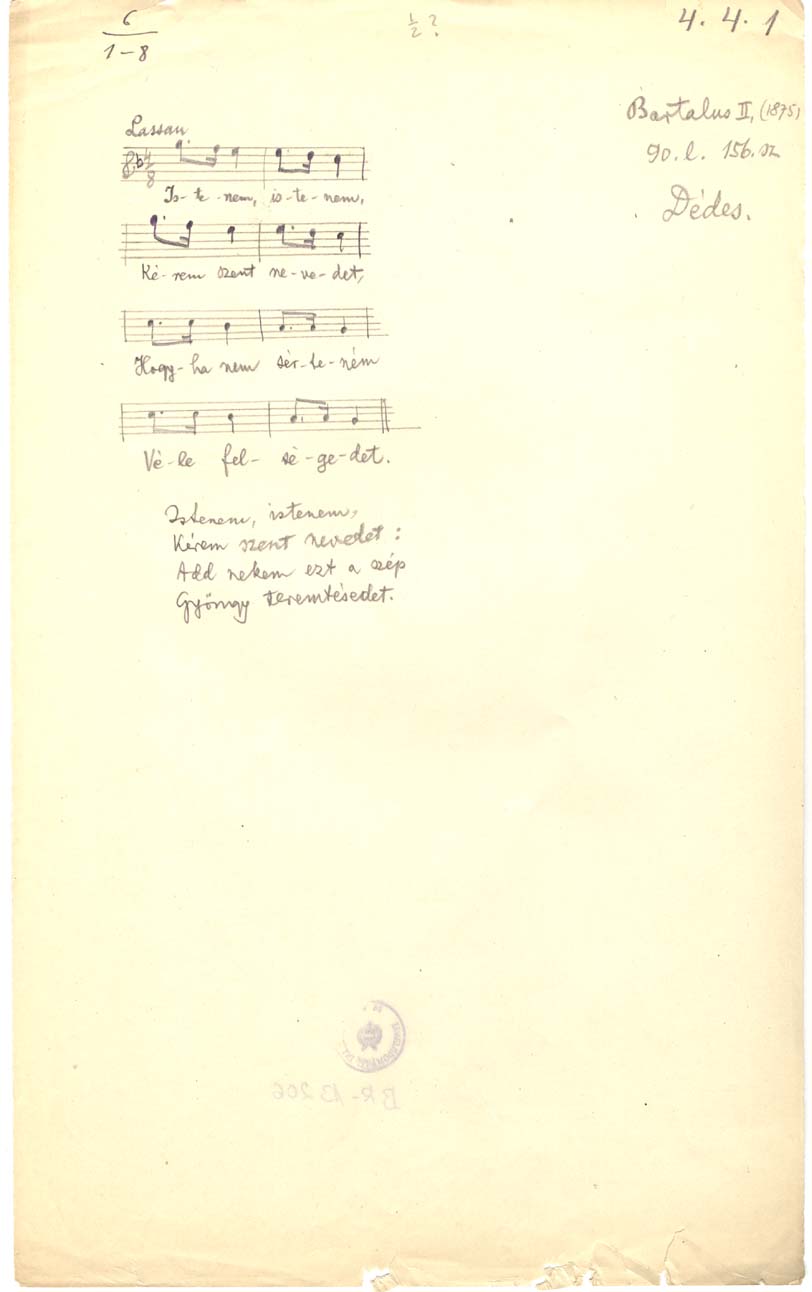 6
1-8
1/2 ?
4. 4. 1
Bartalus II, (1875)
90. l. 156. sz
Dédes.
Lassan
4
8
Is- te -nem, is- te- nem,
Ké- rem szent ne- ve- det,
Hogy- ha nem sér- te- ném
Vé- le fel- sé -ge- det.
Istenem, istenem,
Kérem szent nevedet :
Add nekem ezt a szép
Gyöngy teremtésedet.
BR-13206